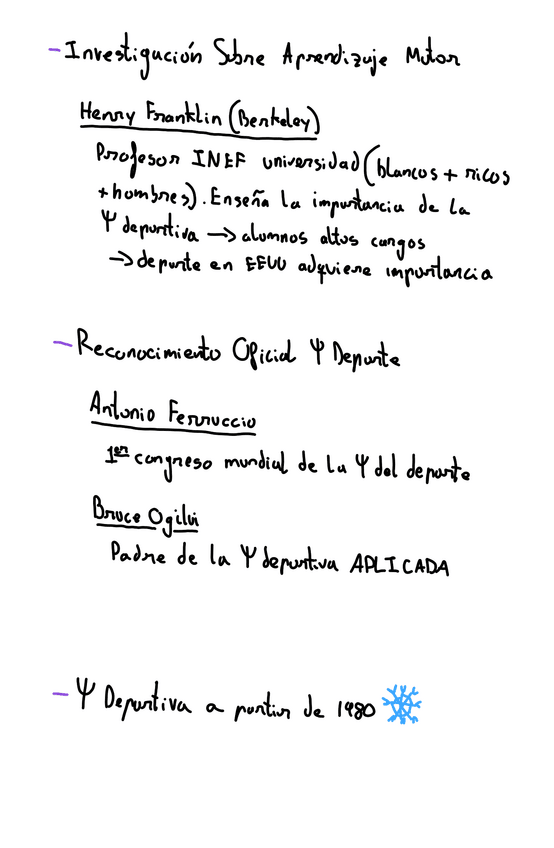 - Investigación Sobre Aprendizaje Motor
Henry Franklin (Berkeley)
Profesor INEF universidad (blancos + ricos
+ hombres). Enseña la importancia de la
Ψ deportiva → alumnos altos cargos
→ deporte en EEUU adquiere importancia
- Reconocimiento Oficial Ψ Deporte
Antonio Ferruccio
1er congreso mundial de la Ψ del deporte
Bruce Ogilvi
Padre de la Ψ deportiva APLICADA
- Ψ Deportiva a partir de 1980